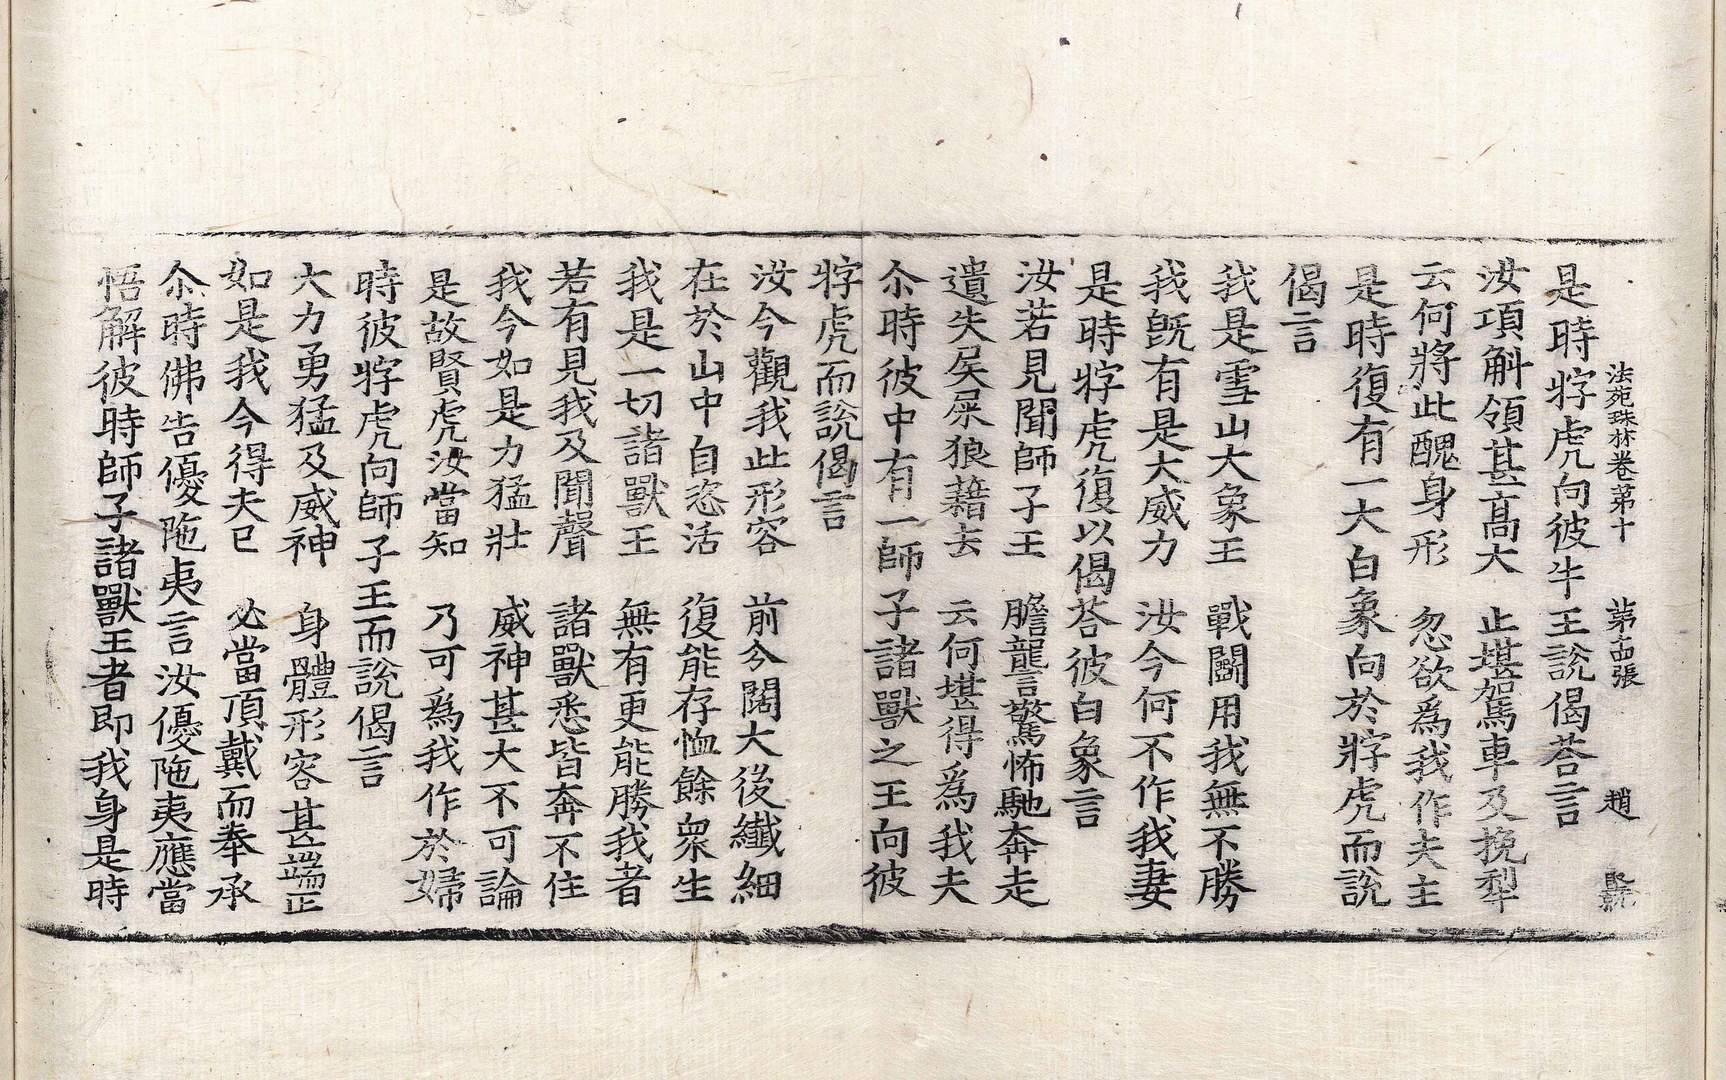 法苑珠林卷第十　第十四張　趙
是時牸虎向彼牛王說偈荅言
汝項斛領甚高大　止堪駕車及挽犁
云何將此醜身形　忽欲爲我作夫主
是時復有一大白象向於牸虎而說
偈言
我是雪山大象王　戰鬪用我無不勝
我旣有是大威力　汝今何不作我妻
是時牸虎復以偈荅彼白象言
汝若見聞師子王　膽讋驚怖馳奔走
遺失戻屎狼藉去　云何堪得爲我夫
尒時彼中有一師子諸獸之王向彼
牸虎而說偈言
汝今觀我此形容　前分闊大後纖細
在於山中自恣活　復能存恤餘衆生
我是一切諸獸王　無有更能勝我者
若有見我及聞聲　諸獸悉皆奔不住
我今如是力猛壯　威神甚大不可論
是故賢虎汝當知　乃可爲我作於婦
時彼牸虎向師子王而說偈言
大力勇猛及威神　身體形容甚端正
如是我今得夫已　必當頂戴而奉承
尒時佛告優陁夷言汝優陁夷應當
悟解彼時師子諸獸王者即我身是時